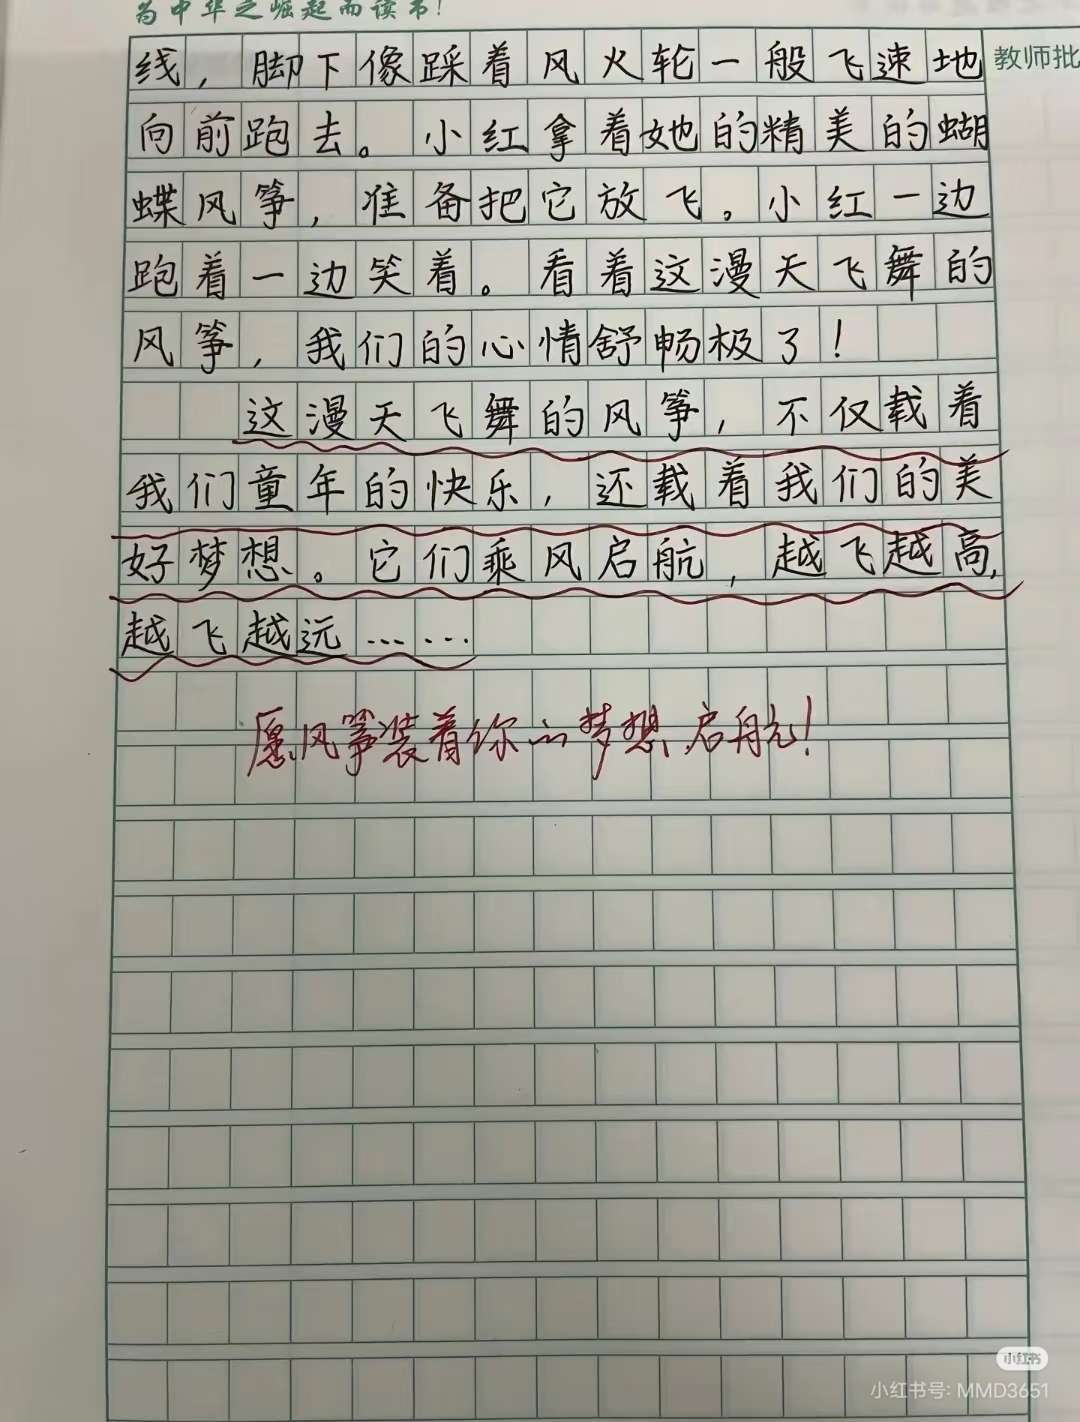 为中华之崛起而读书!
教师批
线，脚下像踩着风火轮一般飞速地
向前跑去。小红拿着她的精美的蝴
蝶风筝，准备把它放飞。小红一边
跑着一边笑着。看着这漫天飞舞的
风筝，我们的心情舒畅极了！
这漫天飞舞的风筝，不仅载着
我们童年的快乐，还载着我们的美
好梦想。它们乘风启航，越飞越高，
越飞越远……
愿风筝装着你的梦想启航！
小红书
小红书号: MMD3651